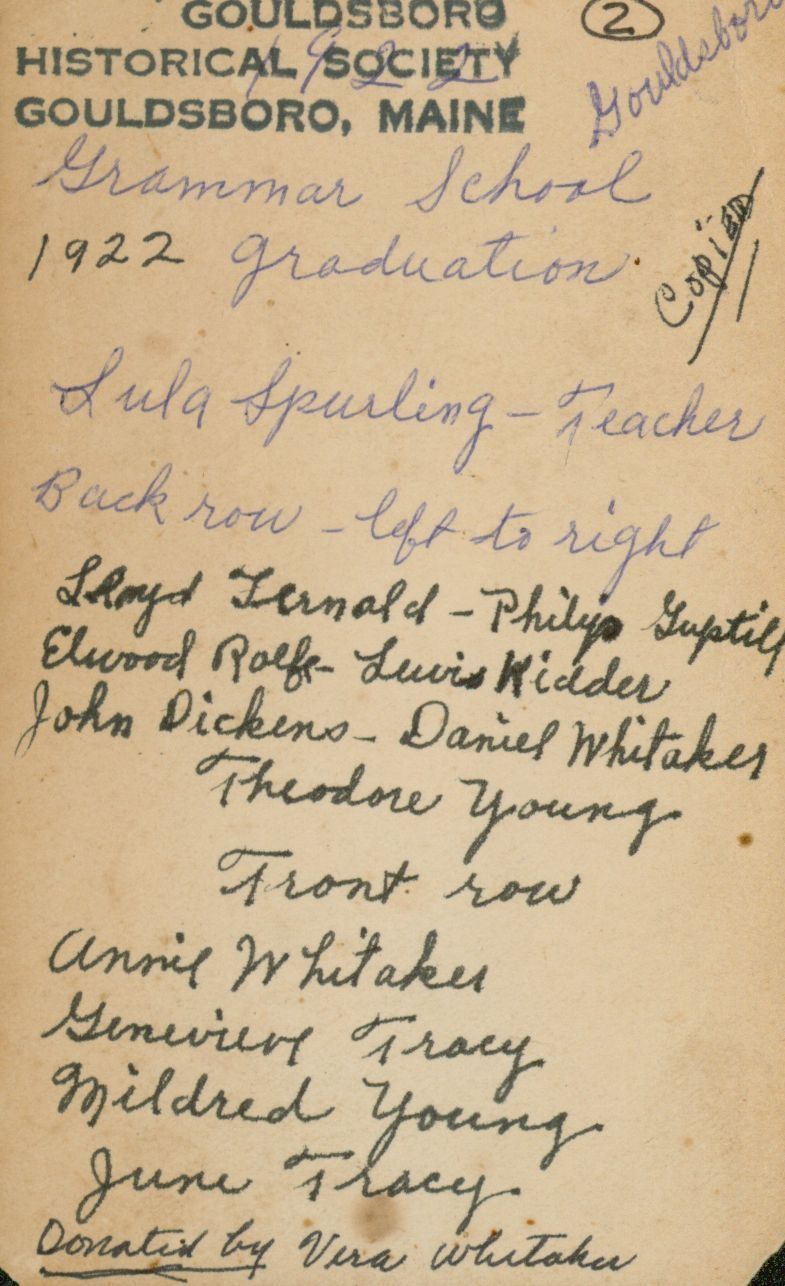 GOULDSBORO
HISTORICAL SOCIETY
GOULDSBORO, MAINE
1922
2
Gouldsboro
Grammar School
1922 Graduation
Copied
Lula Spurling - Teacher
Back row - left to right
Lloyd Fernald - Philip Guptill
Elwood Rolfe - Lewis Kidder
John Dickens - Daniel Whitaker
Theodore Young
Front row
Annie Whitaker
Genevieve Tracy
Mildred Young
June Tracy
Donated by Vera Whitaker